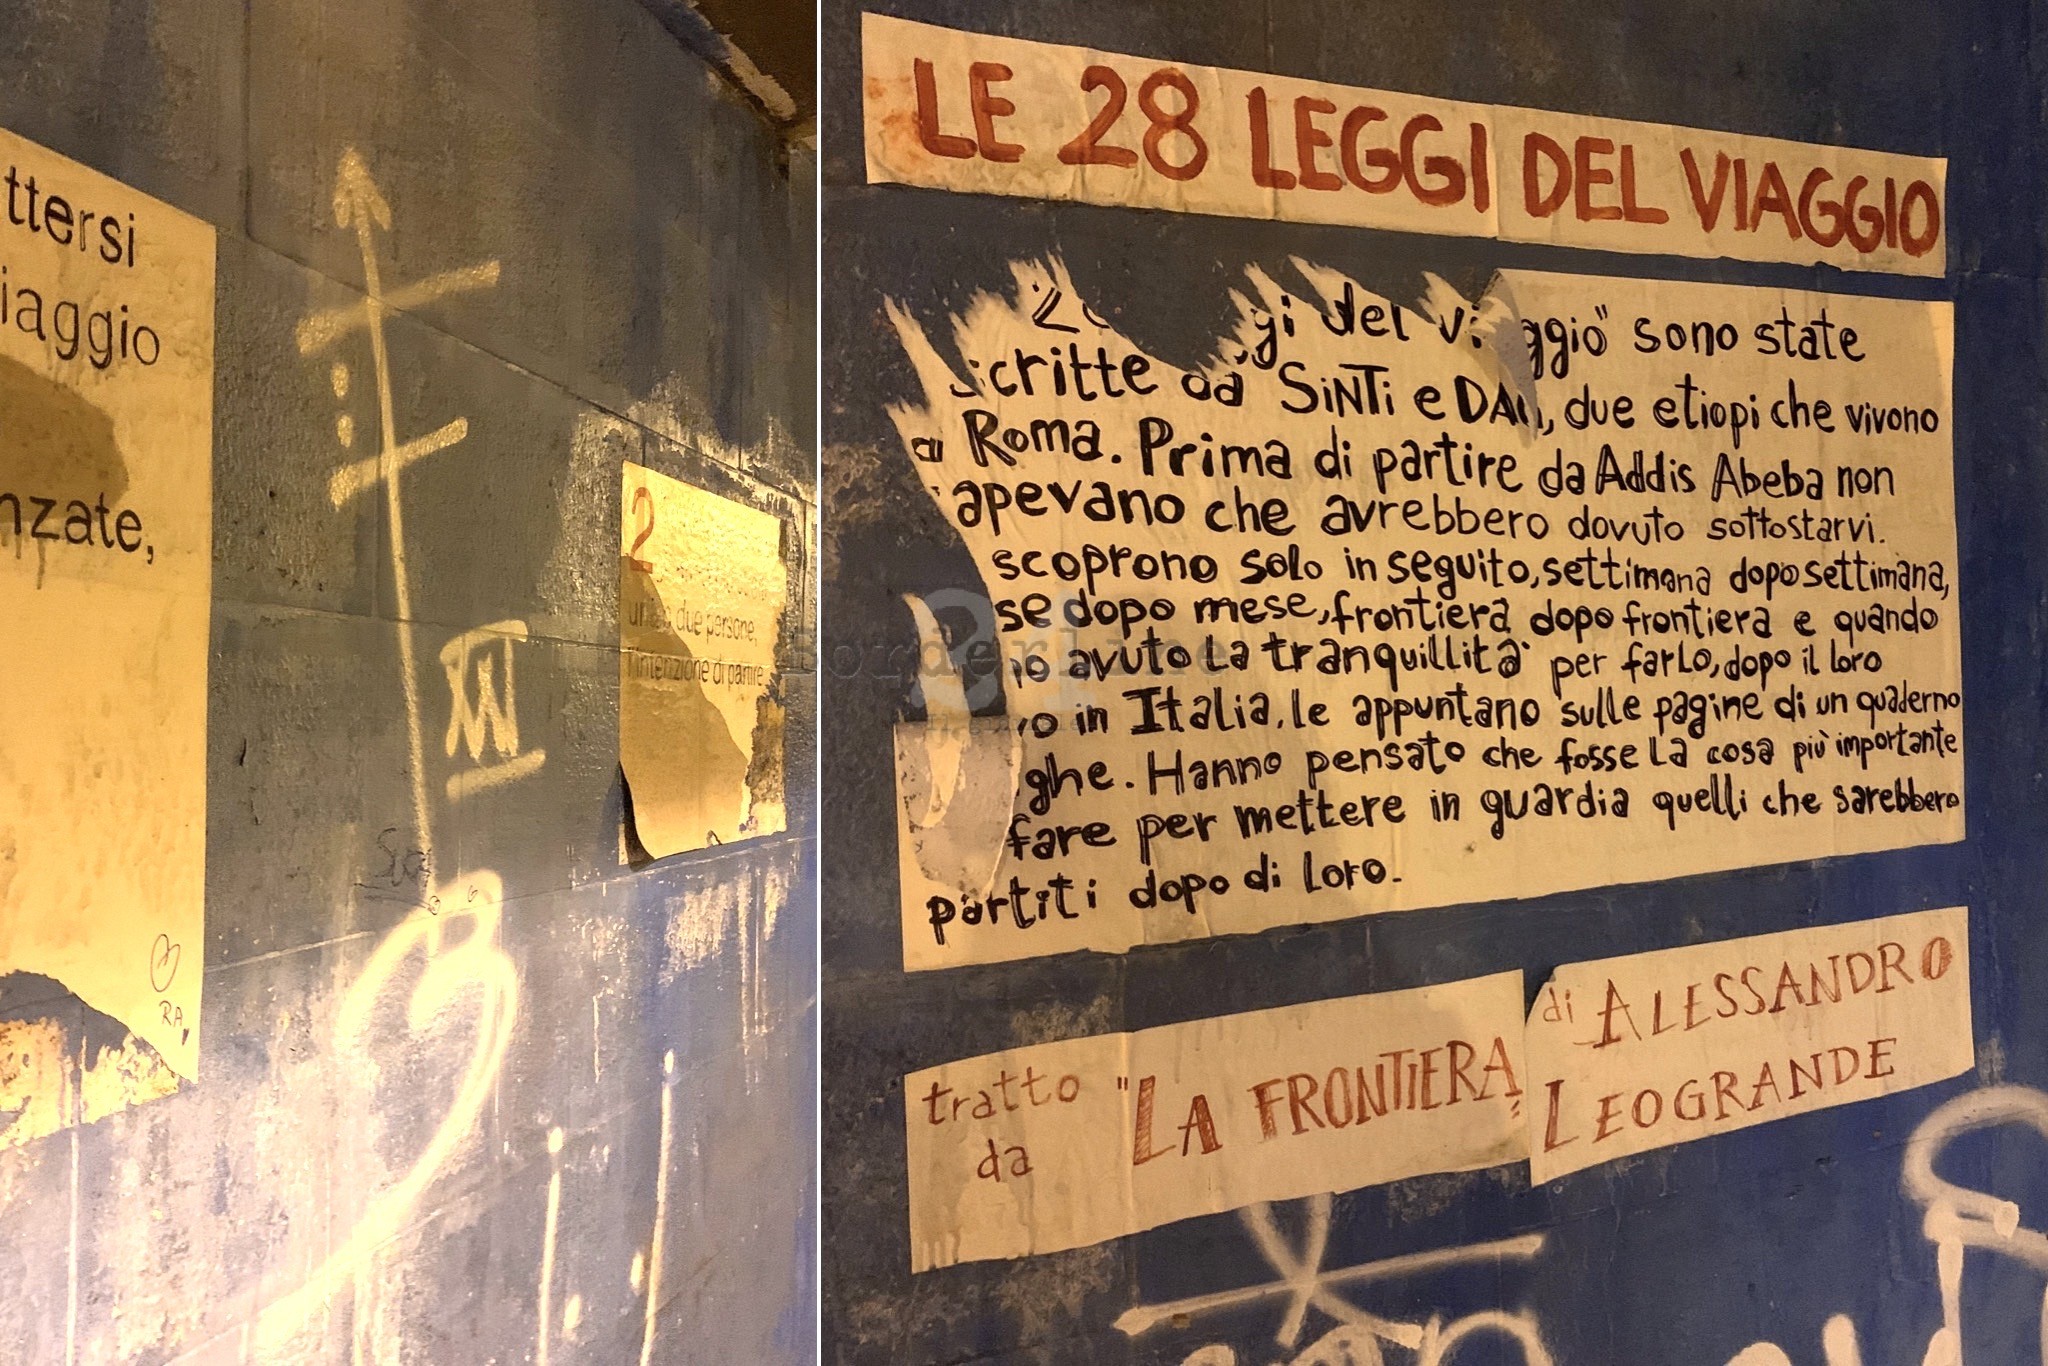 ttersi
iaggio
nzate,
RA
2
due persone,
l'intenzione di partire
LE 28 LEGGI DEL VIAGGIO
gi del vi ggio" sono state
scritte da SiNTi e DA, due etiopi che vivono
a Roma. Prima di partire da Addis Abeba non
apevano che avrebbero dovuto sottostarvi.
scoprono solo in seguito, settimana dopo settimana,
se dopo mese, frontiera dopo frontiera e quando
no avuto la tranquillità per farlo, dopo il loro
vo in Italia, le appuntano sulle pagine di un quaderno
ghe. Hanno pensato che fosse la cosa più importante
fare per mettere in guardia quelli che sarebbero
partiti dopo di loro.
tratto da "LA FRONTIERA" di ALESSANDRO
LEOGRANDE
borderline